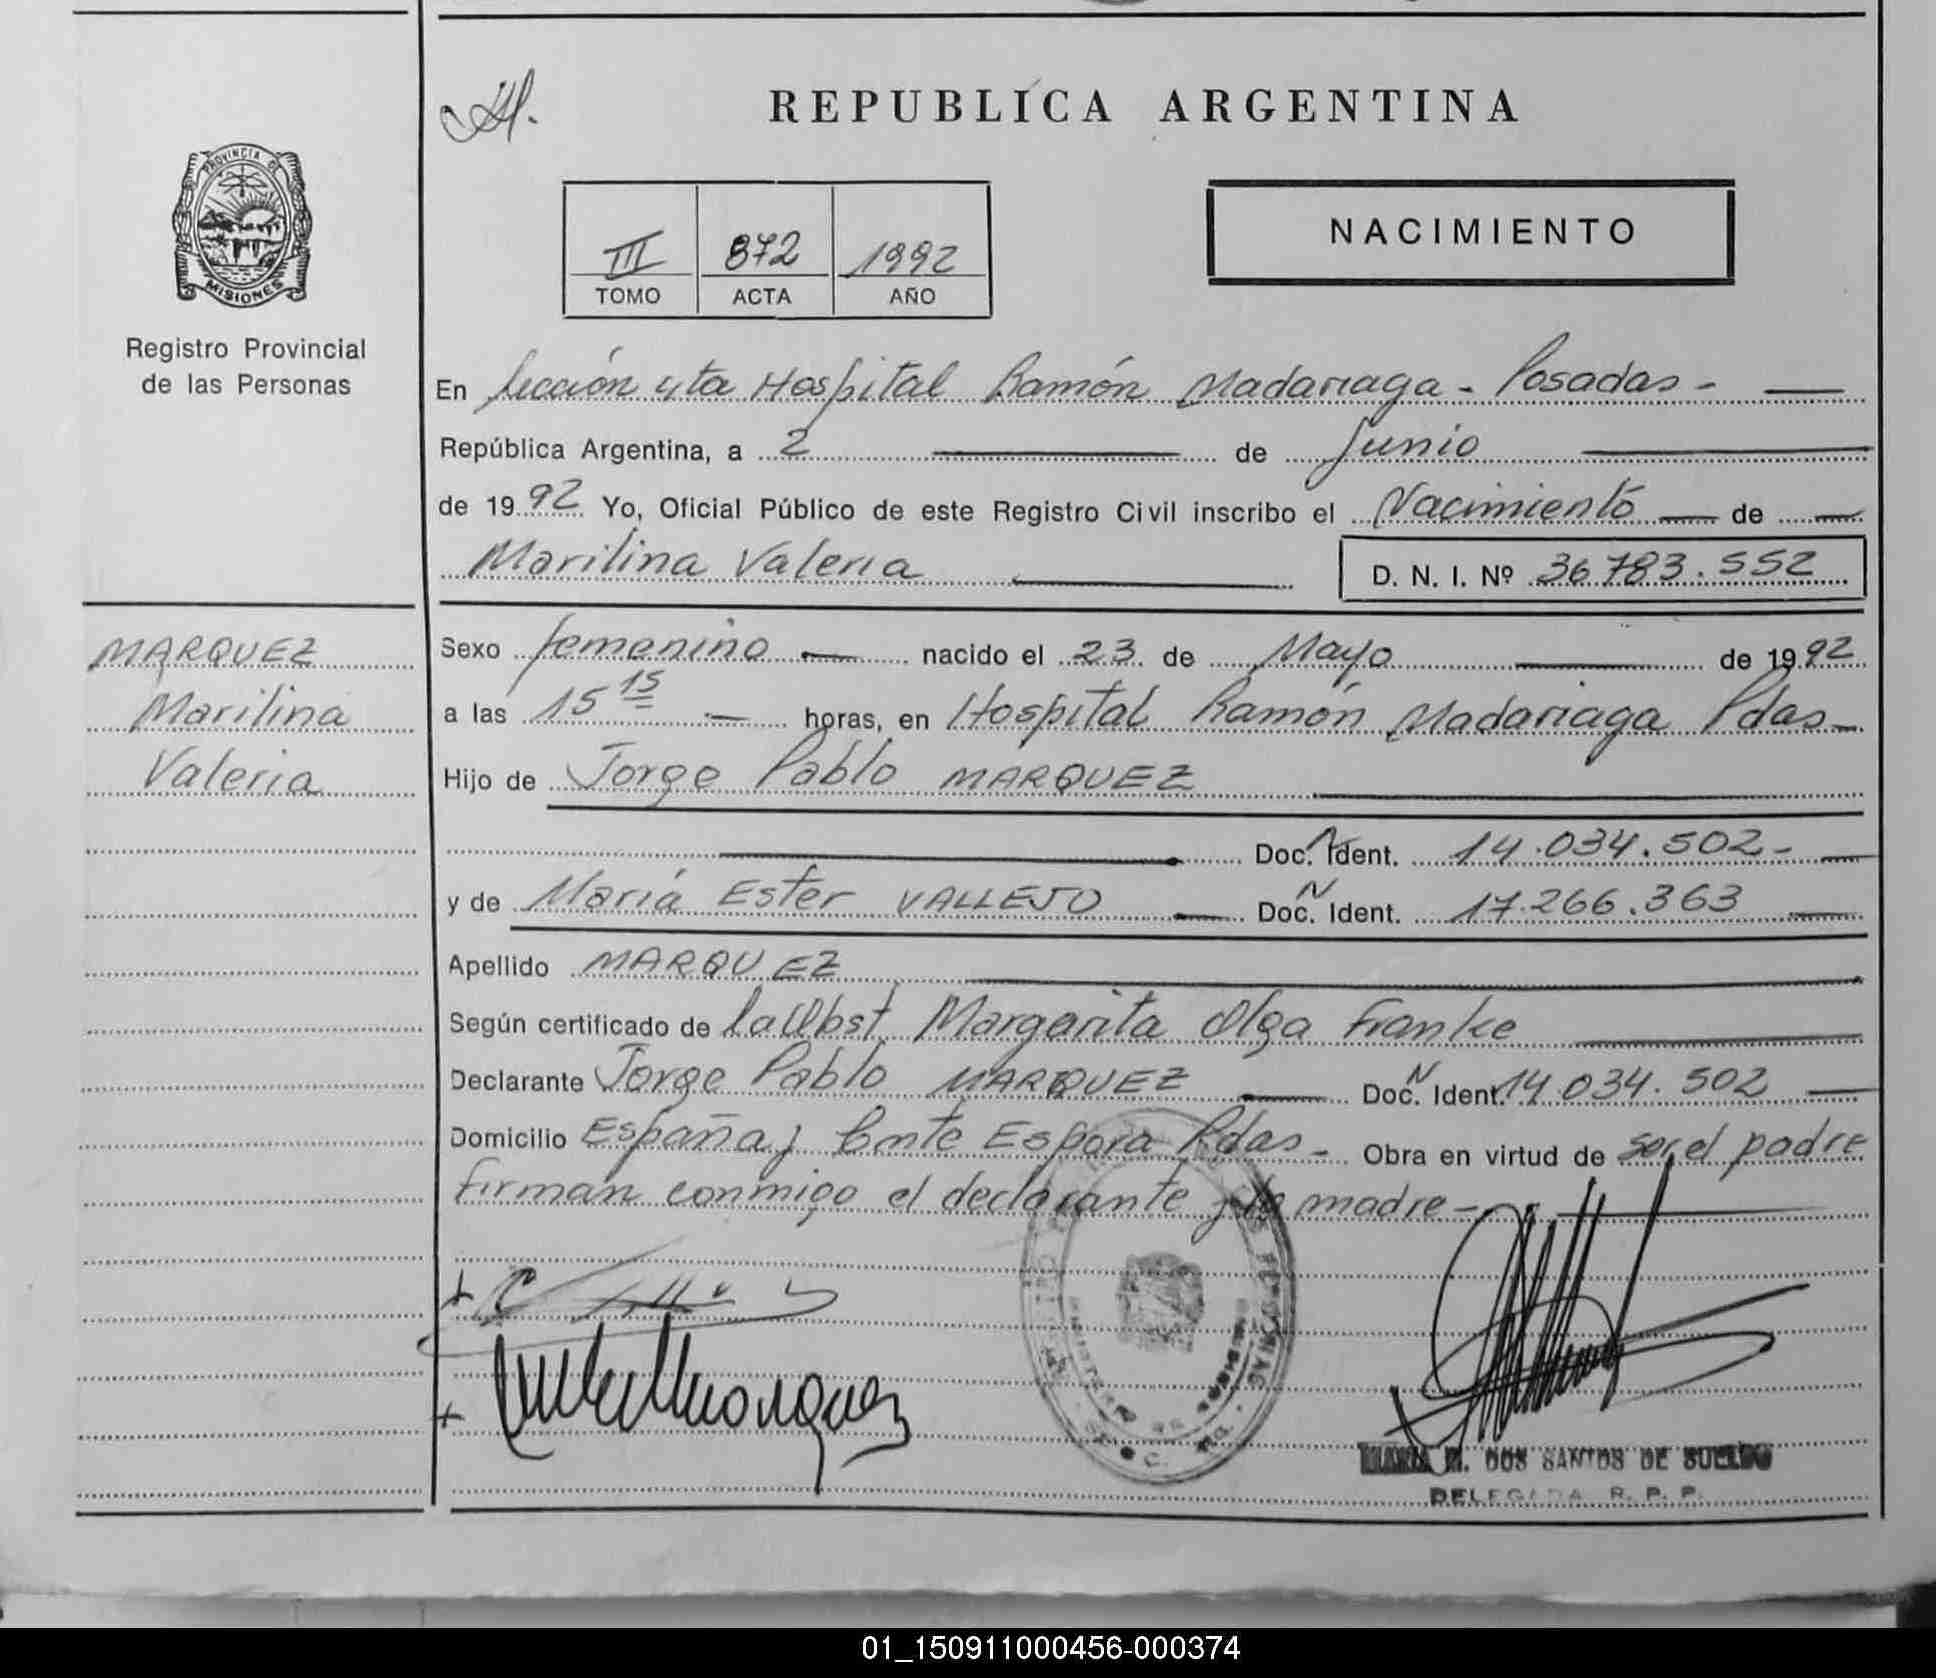 REPUBLICA ARGENTINA
PROVINCIA DE
MISIONES
Registro Provincial
de las Personas
III 872 1992
TOMO ACTA AÑO
NACIMIENTO
En Sección 4ta Hospital Ramón Madariaga - Posadas -
República Argentina, a 2 de Junio
de 1992 Yo, Oficial Público de este Registro Civil inscribo el Nacimiento de
Marilina Valeria D. N. I. Nº 36783.552
MARQUEZ
Marilina
Valeria
Sexo femenino nacido el 23 de Mayo de 1992
a las 15 15 horas, en Hospital Ramón Madariaga Pdas
Hijo de Jorge Pablo MARQUEZ
Doc. N Ident. 14.034.502-
y de María Ester VALLEJO Doc. N Ident. 17.266.363
Apellido MARQUEZ
Según certificado de la Obst Margarita Olga Franke
Declarante Jorge Pablo MARQUEZ Doc. N Ident. 14.034.502
Domicilio España y Cnte Espora Pdas - Obra en virtud de ser el padre
firman conmigo el declarante y la madre -
Marquez
DOS SANTOS DE SUELDO
DELEGADA R. P. P.
01_150911000456-000374